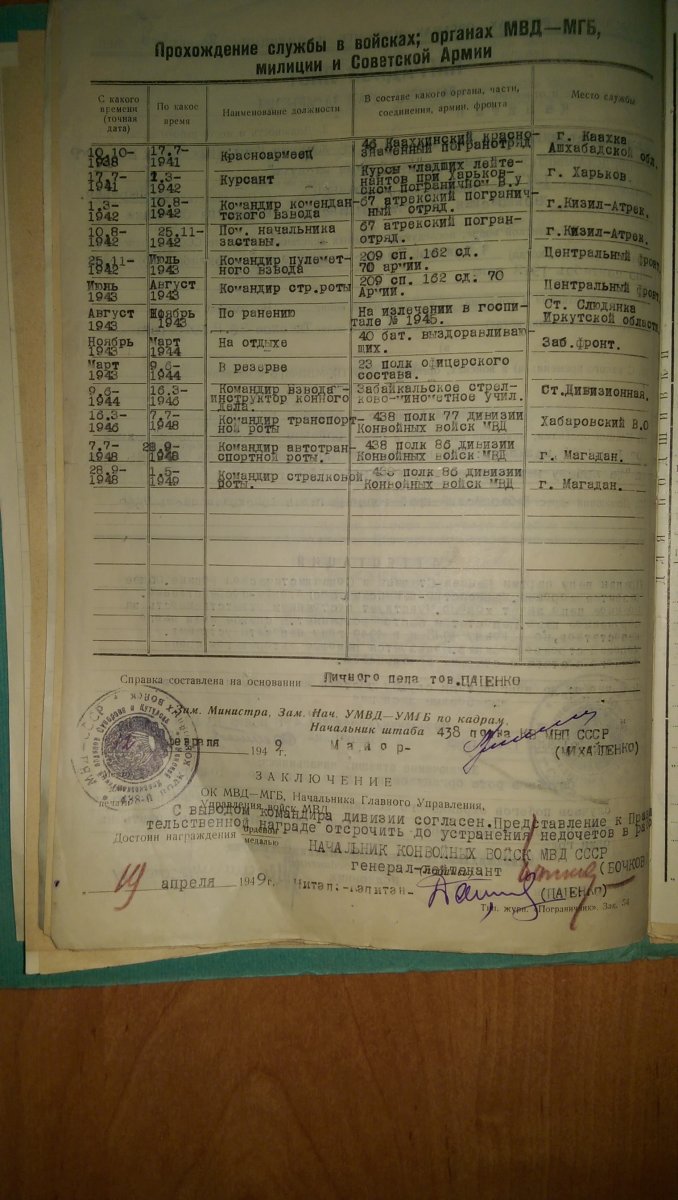 Прохождение службы в войсках; органах МВД—МГБ,
милиции и Советской Армии
С какого времени (точная дата) По какое время Наименование должности В составе какого органа, части, соединения, армии, фронта Место службы
10.10-1938 17.7-1941 Красноармеец 46 Каахкинский красно-знаменный погранотряд г. Каахка Ашхабадской обл.
17.7-1941 1.3-1942 Курсант Курсы младших лейте-нантов при Харьков-ском пограничном В.У г. Харьков.
1.3-1942 10.8-1942 Командир комендан-тского взвода 67 атрекский погранич-ный отряд. г.Кизил-Атрек.
10.8-1942 25.11-1942 Пом. начальника заставы. 67 атрекский погран-отряд. г.Кизил-Атрек.
25.11-1942 Июль 1943 Командир пулемет-ного взвода 209 сп. 162 сд. 70 армии. Центральный фронт
Июнь 1943 Август 1943 Командир стр.роты 209 сп. 162 сд. 70 Армии. Центральный фронт
Август 1943 Ноябрь 1943 По ранению На излечении в госпи-тале № 1945. Ст. Слюдянка Иркутской области
Ноябрь 1943 Март 1944 На отдыхе 40 бат. выздоравливаю-щих. Заб.фронт.
Март 1943 9.6-1944 В резерве 23 полк офицерского состава.
9.6-1944 16.3-1946 Командир взвода -инструктор конного дела. Забайкальское стрел-ково-минометное учил. Ст.Дивизионная.
16.3-1946 7.7-1948 Командир транспорт-ной роты 438 полк 77 дивизии Конвойных войск МВД Хабаровский В.О
7.7-1948 28.9-1948 Командир автотран-спортной роты. 438 полк 86 дивизии Конвойных войск МВД г. Магадан.
28.9-1948 1.5-1949 Командир стрелковой роты. 438 полк 86 дивизии Конвойных войск МВД г. Магадан.
Справка составлена на основании Личного дела тов.ПАЦЕНКО
Зам. Министра, Зам. Нач. УМВД—УМГБ по кадрам
Начальник штаба 438 полка КВ МВД СССР
февраля 1949 г. Майор- (МИХАЙЛЕНКО)
ЗАКЛЮЧЕНИЕ
ОК МВД—МГБ, Начальника Главного Управления,
Управления войск МВД
С выводом командира дивизии согласен.Представление к Прави
тельственной награде отсрочить до устранения недочетов в работе
Достоин награждения орденом медалью
НАЧАЛЬНИК КОНВОЙНЫХ ВОЙСК МВД СССР
генерал-лейтенант (БОЧКОВ
19 апреля 1949г. Читал:-капитан- (ПАЦЕНКО)
Тип. журн. «Пограничник». Зак. 54